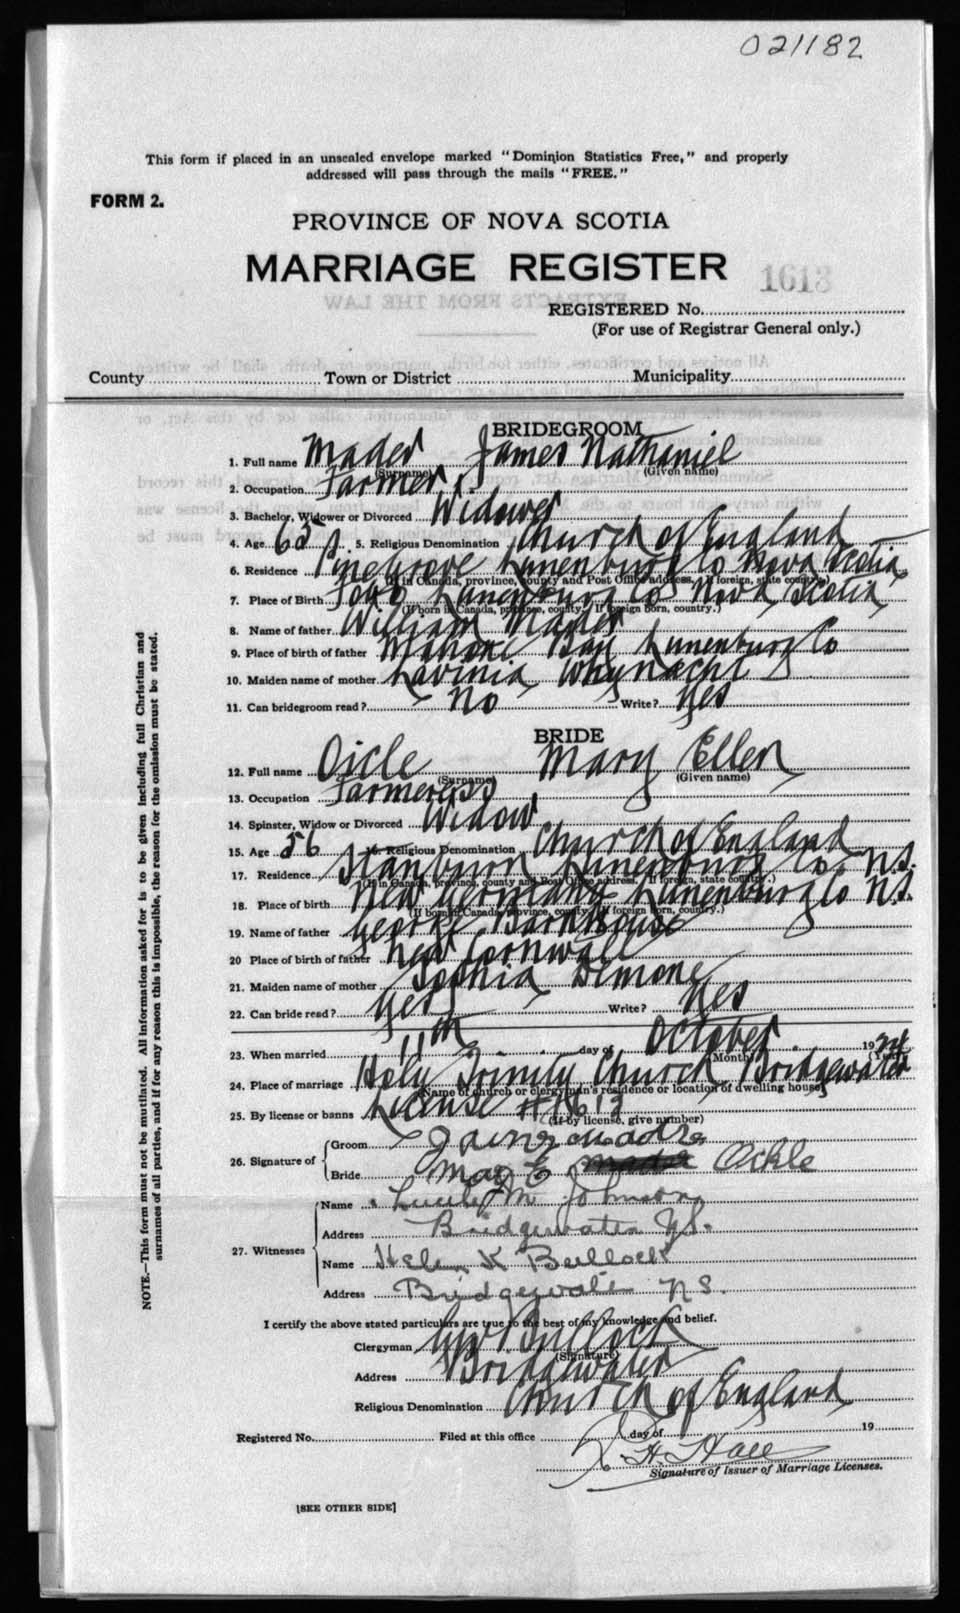 021182
This form if placed in an unsealed envelope marked "Dominion Statistics Free," and properly
addressed will pass through the mails "FREE."
FORM 2.
PROVINCE OF NOVA SCOTIA
MARRIAGE REGISTER
1613
REGISTERED No.
(For use of Registrar General only.)
County Town or District Municipality
BRIDEGROOM
1. Full name Mader James Nathaniel
(Surname) (Given name)
2. Occupation Farmer
3. Bachelor, Widower or Divorced Widower
4. Age 65 5. Religious Denomination Church of England
6. Residence Pinegrove Lunenburg Co Nova Scotia
(If in Canada, province, county and Post Office address. If foreign, state country.)
7. Place of Birth Lunenburg Co Nova Scotia
(If born in Canada, province, county. If foreign born, country.)
8. Name of father William Mader
9. Place of birth of father Mahone Bay Lunenburg Co
10. Maiden name of mother Lavinia Whynacht
11. Can bridegroom read? No Write? Yes
BRIDE
12. Full name Oicle Mary Ellen
(Surname) (Given name)
13. Occupation Farmeress
14. Spinster, Widow or Divorced Widow
15. Age 56 16. Religious Denomination Church of England
17. Residence Stanburn Lunenburg Co N.S.
(If in Canada, province, county and Post Office address. If foreign, state country.)
18. Place of birth New Germany Lunenburg Co N.S.
(If born in Canada, province, county. If foreign born, country.)
19. Name of father George Barkhouse
20 Place of birth of father New Cornwall
21. Maiden name of mother Sophia Demone
22. Can bride read? Yes Write? Yes
23. When married 11th day of October 1924
(Month) (Year)
24. Place of marriage Holy Trinity Church, Bridgewater
(Name of church or clergyman's residence or location of dwelling house)
25. By license or banns License # 1613
(If by license, give number)
26. Signature of
Groom James Mader
Bride Mary E Oickle
27. Witnesses
Name M Johnson
Address Bridgewater N.S.
Name Helen K Bullock
Address Bridgewater N.S.
I certify the above stated particulars are true to the best of my knowledge and belief.
Clergyman Bullock
(Signature)
Address Bridgewater
Religious Denomination Church of England
Registered No. Filed at this office day of 19
H. Hall
Signature of Issuer of Marriage Licenses.
[SEE OTHER SIDE]
NOTE.—This form must not be mutilated. All information asked for is to be given including full Christian and
surnames of all parties, and if for any reason this is impossible, the reason for the omission must be stated.